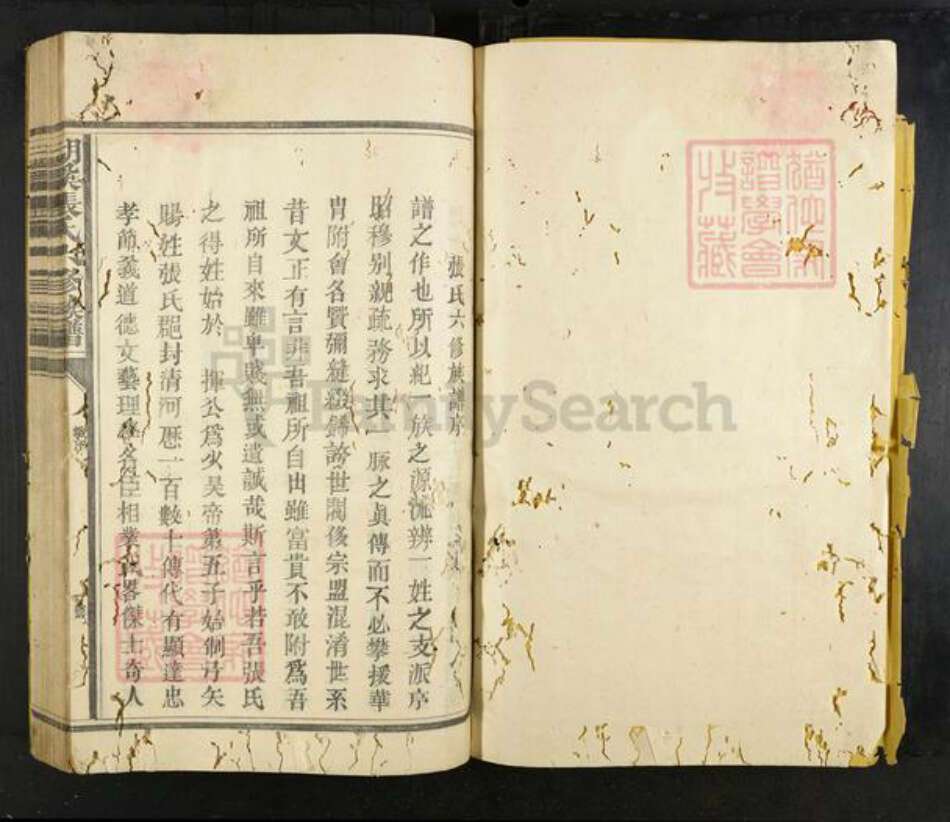 張氏六修族譜序
譜之作也所以紀一族之源流辨一姓之支派序
昭穆别親疏務求其一脈之眞傳而不必攀援華
胄附會各賢彌縫綴鏄誇世閥後宗盟混淆世系
昔文正有言非吾祖所自出雖富貴不敢附爲吾
祖所自來雖卑賤無或遺誠哉斯言乎若吾張氏
之得姓始於 揮公爲少昊帝第五子始制弓矢
賜姓張氏封清河歴一百數十傳代有顯達忠
孝節義道德文藝理學名臣相業器傑士奇人
張氏六修族譜
譜學會
收藏
FamilySearch